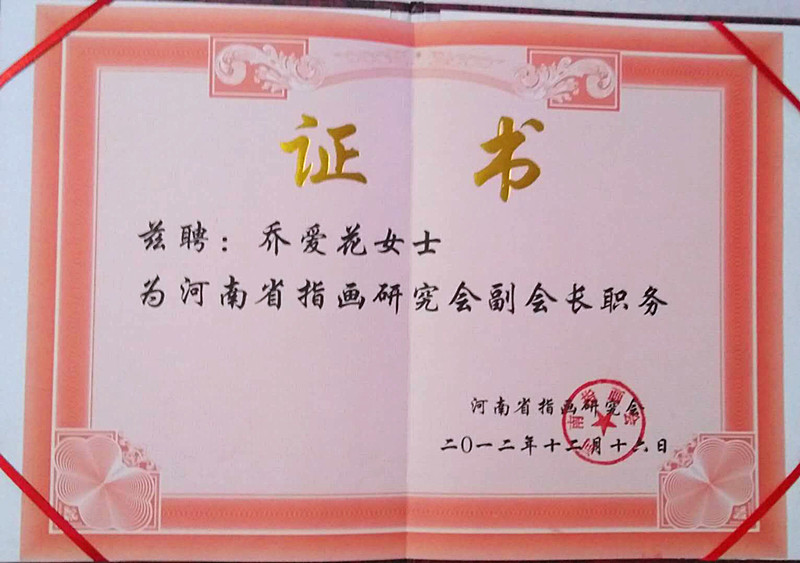 证书
兹聘：乔爱花女士
为河南省指画研究会副会长职务
河南省指画研究会
二〇一二年十二月十六日